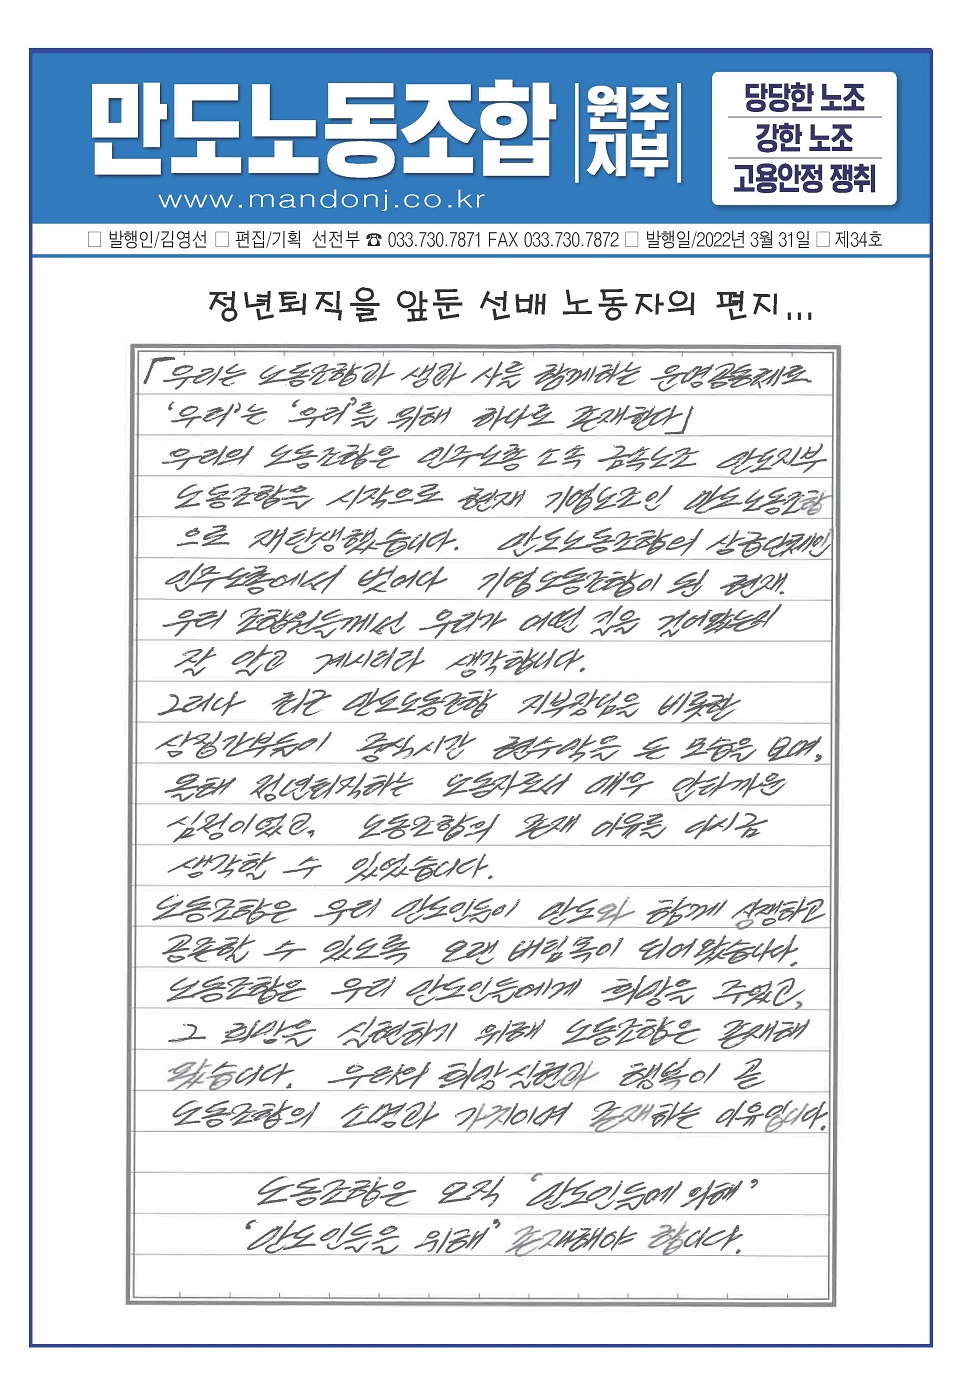 만도노동조합 원주지부
www.mandonj.co.kr
당당한 노조
강한 노조
고용안정 쟁취
□ 발행인/김영선 □ 편집/기획 선전부 ☎ 033.730.7871 FAX 033.730.7872 □ 발행일/2022년 3월 31일 □ 제34호
정년퇴직을 앞둔 선배 노동자의 편지...
「우리는 노동조합과 생과 사를 함께하는 운명공동체로
‘우리’는 ‘우리’를 위해 하나로 존재한다」
우리의 노동조합은 민주노총 소속 금속노조 만도지부
노동조합을 시작으로 현재 기업노조인 만도노동조합
으로 재탄생했습니다. 만도노동조합의 상급단체인
민주노총에서 벗어나 기업노동조합이 된 현재.
우리 조합원들께선 우리가 어떤 길을 걸어왔는지
잘 알고 계시리라 생각합니다.
그러나 최근 만도노동조합 지부장님을 비롯한
상집간부들이 중식시간 현수막을 든 모습을 보며,
올해 정년퇴직하는 노동자로서 매우 안타까운
심정이었고, 노동조합의 존재 이유를 다시금
생각할 수 있었습니다.
노동조합은 우리 만도인들이 만도와 함께 상생하고
공존할 수 있도록 오랜 버팀목이 되어왔습니다.
노동조합은 우리 만도인들에게 희망을 주었고,
그 희망을 실현하기 위해 노동조합은 존재해
왔습니다. 우리의 희망실현과 행복이 곧
노동조합의 소명과 가치이며 존재하는 이유입니다.
노동조합은 오직 ‘만도인들에 의해’
‘만도인들을 위해’ 존재해야 합니다.